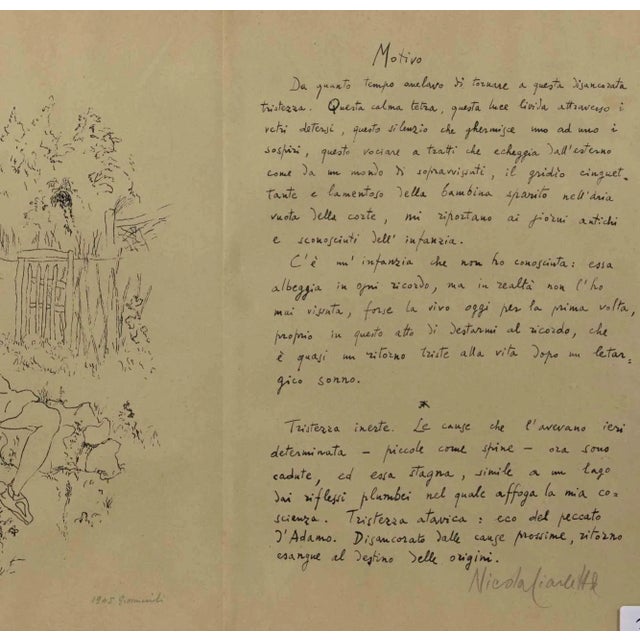 Motivo
Da quanto tempo anelavo di tornare a questa disancorata
tristezza. Questa calma tetra, questa luce livida attraverso i
vetri detersi, questo silenzio che ghermisce uno ad uno i
sospiri, questo vociare a tratti che echeggia dall'esterno
come da un mondo di sopravvissuti, il gridio cinguet-
tante e lamentoso della bambina sparito nell'aria
vuota della corte, mi riportano ai giorni antichi
e sconosciuti dell'infanzia.
C'è un'infanzia che non ho conosciuta: essa
albeggia in ogni ricordo, ma in realtà non l'ho
mai vissuta, forse la vivo oggi per la prima volta,
proprio in questo atto di destarmi al ricordo, che
è quasi un ritorno triste alla vita dopo un letar-
gico sonno.
*
Tristezza inerte. Le cause che l'avevano ieri
determinata – piccole come spine – ora sono
cadute, ed essa stagna, simile a un lago
dai riflessi plumbei nel quale affoga la mia co-
scienza. Tristezza atavica: eco del peccato
d'Adamo. Disancorato dalle cause prossime, ritorno
esangue al destino delle origini.
Nicola Ciarletta
1945